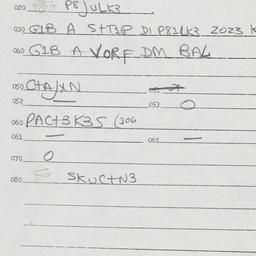 020 P8JULK2
030 G1B A S+T3P D1 P81LK2 2023 K
040 G1B A VORF DM BAL
050 C+AJXN
052 — 053 O
060 PAC+3K35 (306
061 — 062 —
070 O
080 SKUC+N3